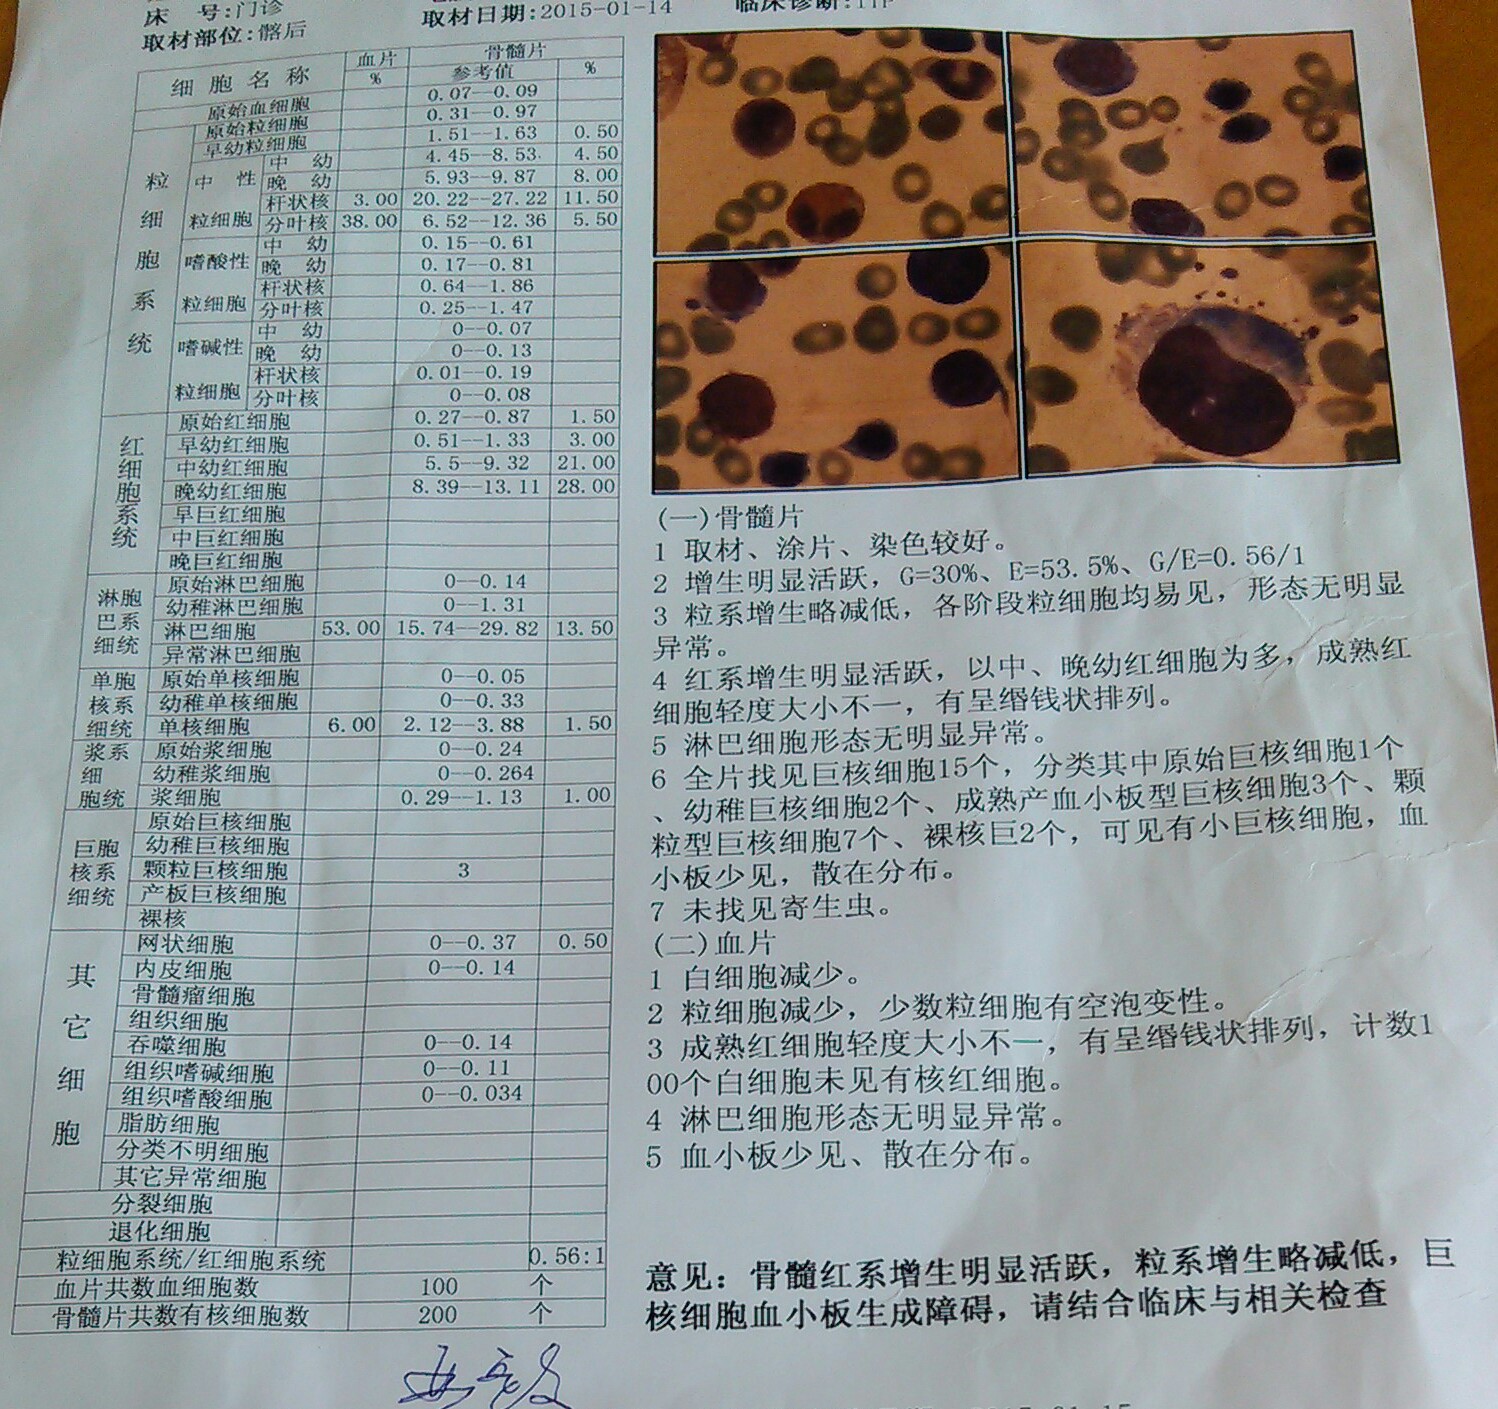 床 号:门诊
取材日期:2015-01-14
临床诊断:ITP
取材部位:髂后
细胞名称 血片 骨髓片
% 参考值 %
原始血细胞 0.07--0.09
粒细胞系统
原始粒细胞 0.31--0.97
早幼粒细胞 1.51--1.63 0.50
中性粒细胞
中 幼 4.45--8.53 4.50
晚 幼 5.93--9.87 8.00
杆状核 3.00 20.22--27.22 11.50
分叶核 38.00 6.52--12.36 5.50
嗜酸性粒细胞
中 幼 0.15--0.61
晚 幼 0.17--0.81
杆状核 0.64--1.86
分叶核 0.25--1.47
嗜碱性粒细胞
中 幼 0--0.07
晚 幼 0--0.13
杆状核 0.01--0.19
分叶核 0--0.08
红细胞系统
原始红细胞 0.27--0.87 1.50
早幼红细胞 0.51--1.33 3.00
中幼红细胞 5.5--9.32 21.00
晚幼红细胞 8.39--13.11 28.00
早巨红细胞
中巨红细胞
晚巨红细胞
淋胞
巴系
细统
原始淋巴细胞 0--0.14
幼稚淋巴细胞 0--1.31
淋巴细胞 53.00 15.74--29.82 13.50
异常淋巴细胞
单胞
核系
细统
原始单核细胞 0--0.05
幼稚单核细胞 0--0.33
单核细胞 6.00 2.12--3.88 1.50
浆系
细
胞统
原始浆细胞 0--0.24
幼稚浆细胞 0--0.264
浆细胞 0.29--1.13 1.00
巨胞
核系
细统
原始巨核细胞
幼稚巨核细胞
颗粒巨核细胞 3
产板巨核细胞
裸核
其它细胞
网状细胞 0--0.37 0.50
内皮细胞 0--0.14
骨髓瘤细胞
组织细胞
吞噬细胞 0--0.14
组织嗜碱细胞 0--0.11
组织嗜酸细胞 0--0.034
脂肪细胞
分类不明细胞
其它异常细胞
分裂细胞
退化细胞
粒细胞系统/红细胞系统 0.56:1
血片共数血细胞数 100 个
骨髓片共数有核细胞数 200 个
(一)骨髓片
1 取材、涂片、染色较好。
2 增生明显活跃，G=30%、E=53.5%、G/E=0.56/1
3 粒系增生略减低，各阶段粒细胞均易见，形态无明显
异常。
4 红系增生明显活跃，以中、晚幼红细胞为多，成熟红
细胞轻度大小不一，有呈缗钱状排列。
5 淋巴细胞形态无明显异常。
6 全片找见巨核细胞15个，分类其中原始巨核细胞1个
、幼稚巨核细胞2个、成熟产血小板型巨核细胞3个、颗
粒型巨核细胞7个、裸核巨2个，可见有小巨核细胞，血
小板少见，散在分布。
7 未找见寄生虫。
(二)血片
1 白细胞减少。
2 粒细胞减少，少数粒细胞有空泡变性。
3 成熟红细胞轻度大小不一，有呈缗钱状排列，计数1
00个白细胞未见有核红细胞。
4 淋巴细胞形态无明显异常。
5 血小板少见、散在分布。
意见：骨髓红系增生明显活跃，粒系增生略减低，巨
核细胞血小板生成障碍，请结合临床与相关检查